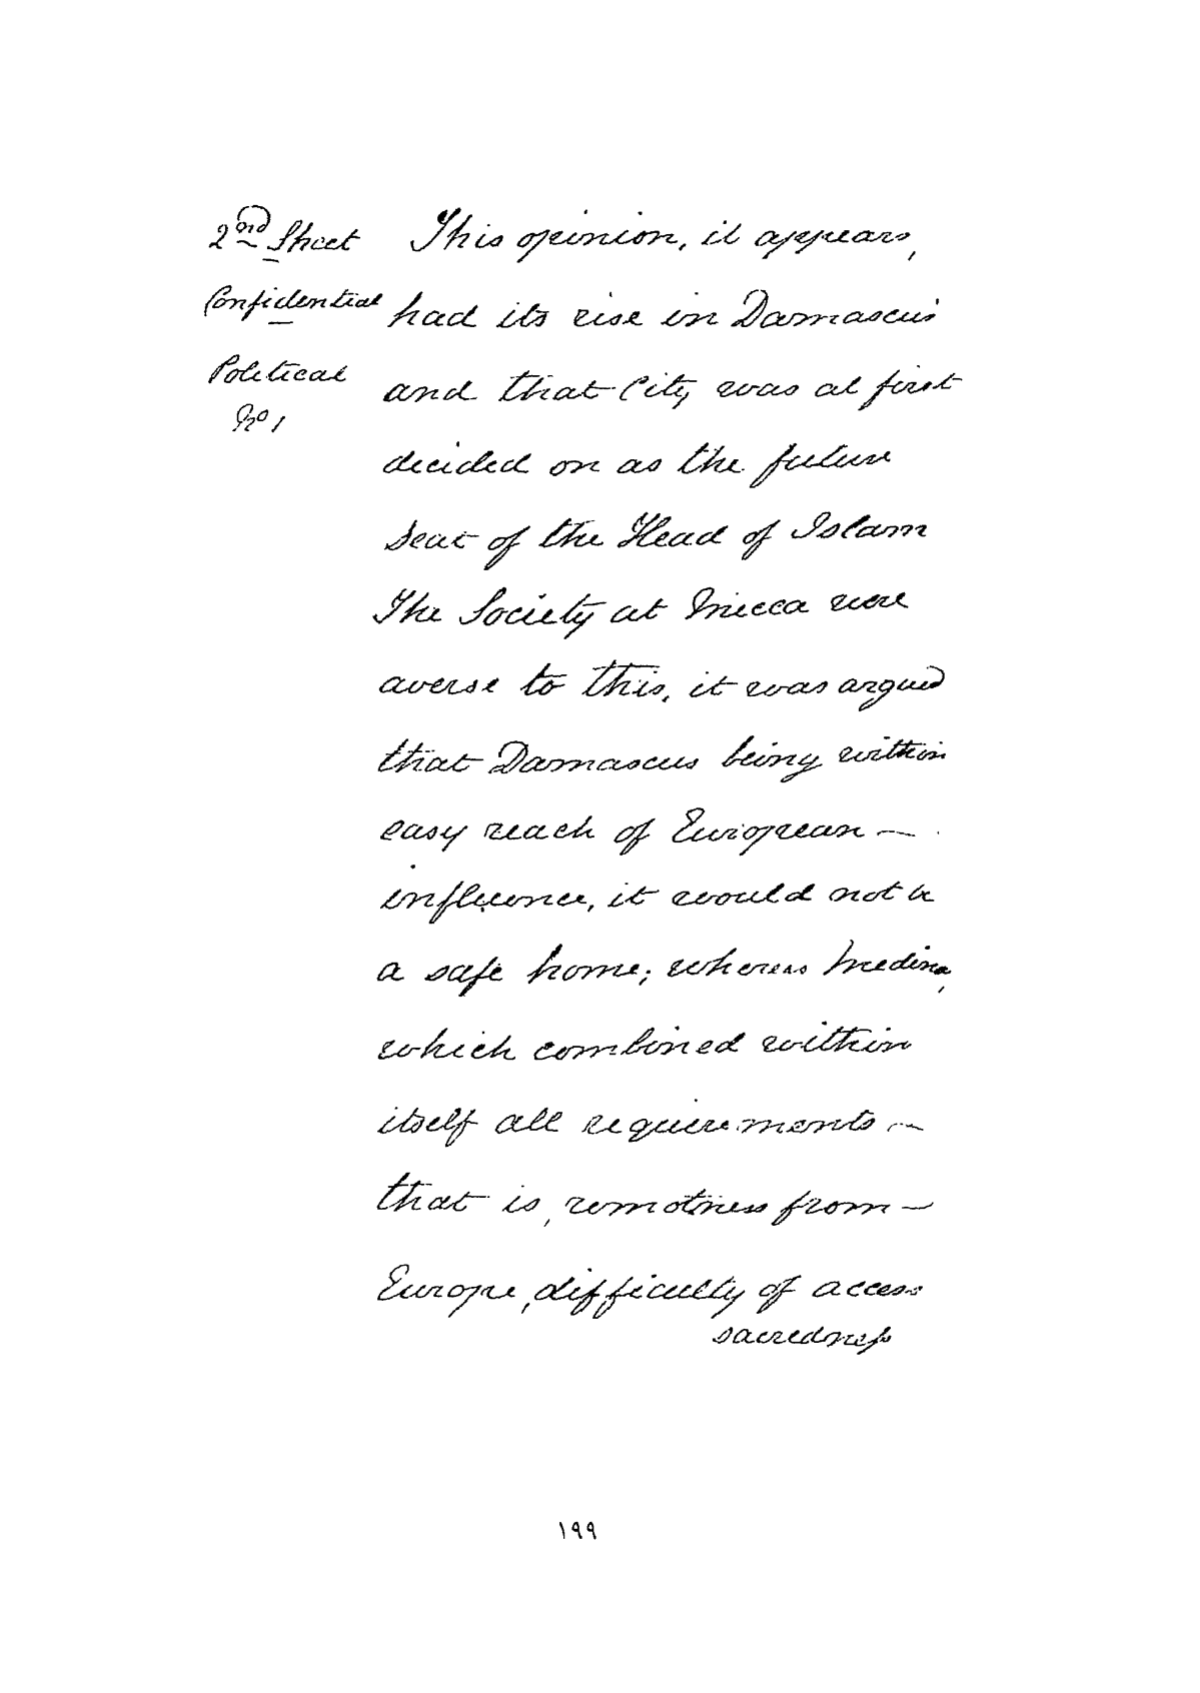 2nd Sheet
Confidential
Political
No 1
This opinion, it appears,
had its rise in Damascus
and that City was at first
decided on as the future
Seat of the Head of Islam
The Society at Mecca were
averse to this, it was argued
that Damascus being within
easy reach of European —
influence, it would not be
a safe home; whereas Medina,
which combined within
itself all requirements —
that is, remoteness from —
Europe, difficulty of access
sacredness
١٩٩